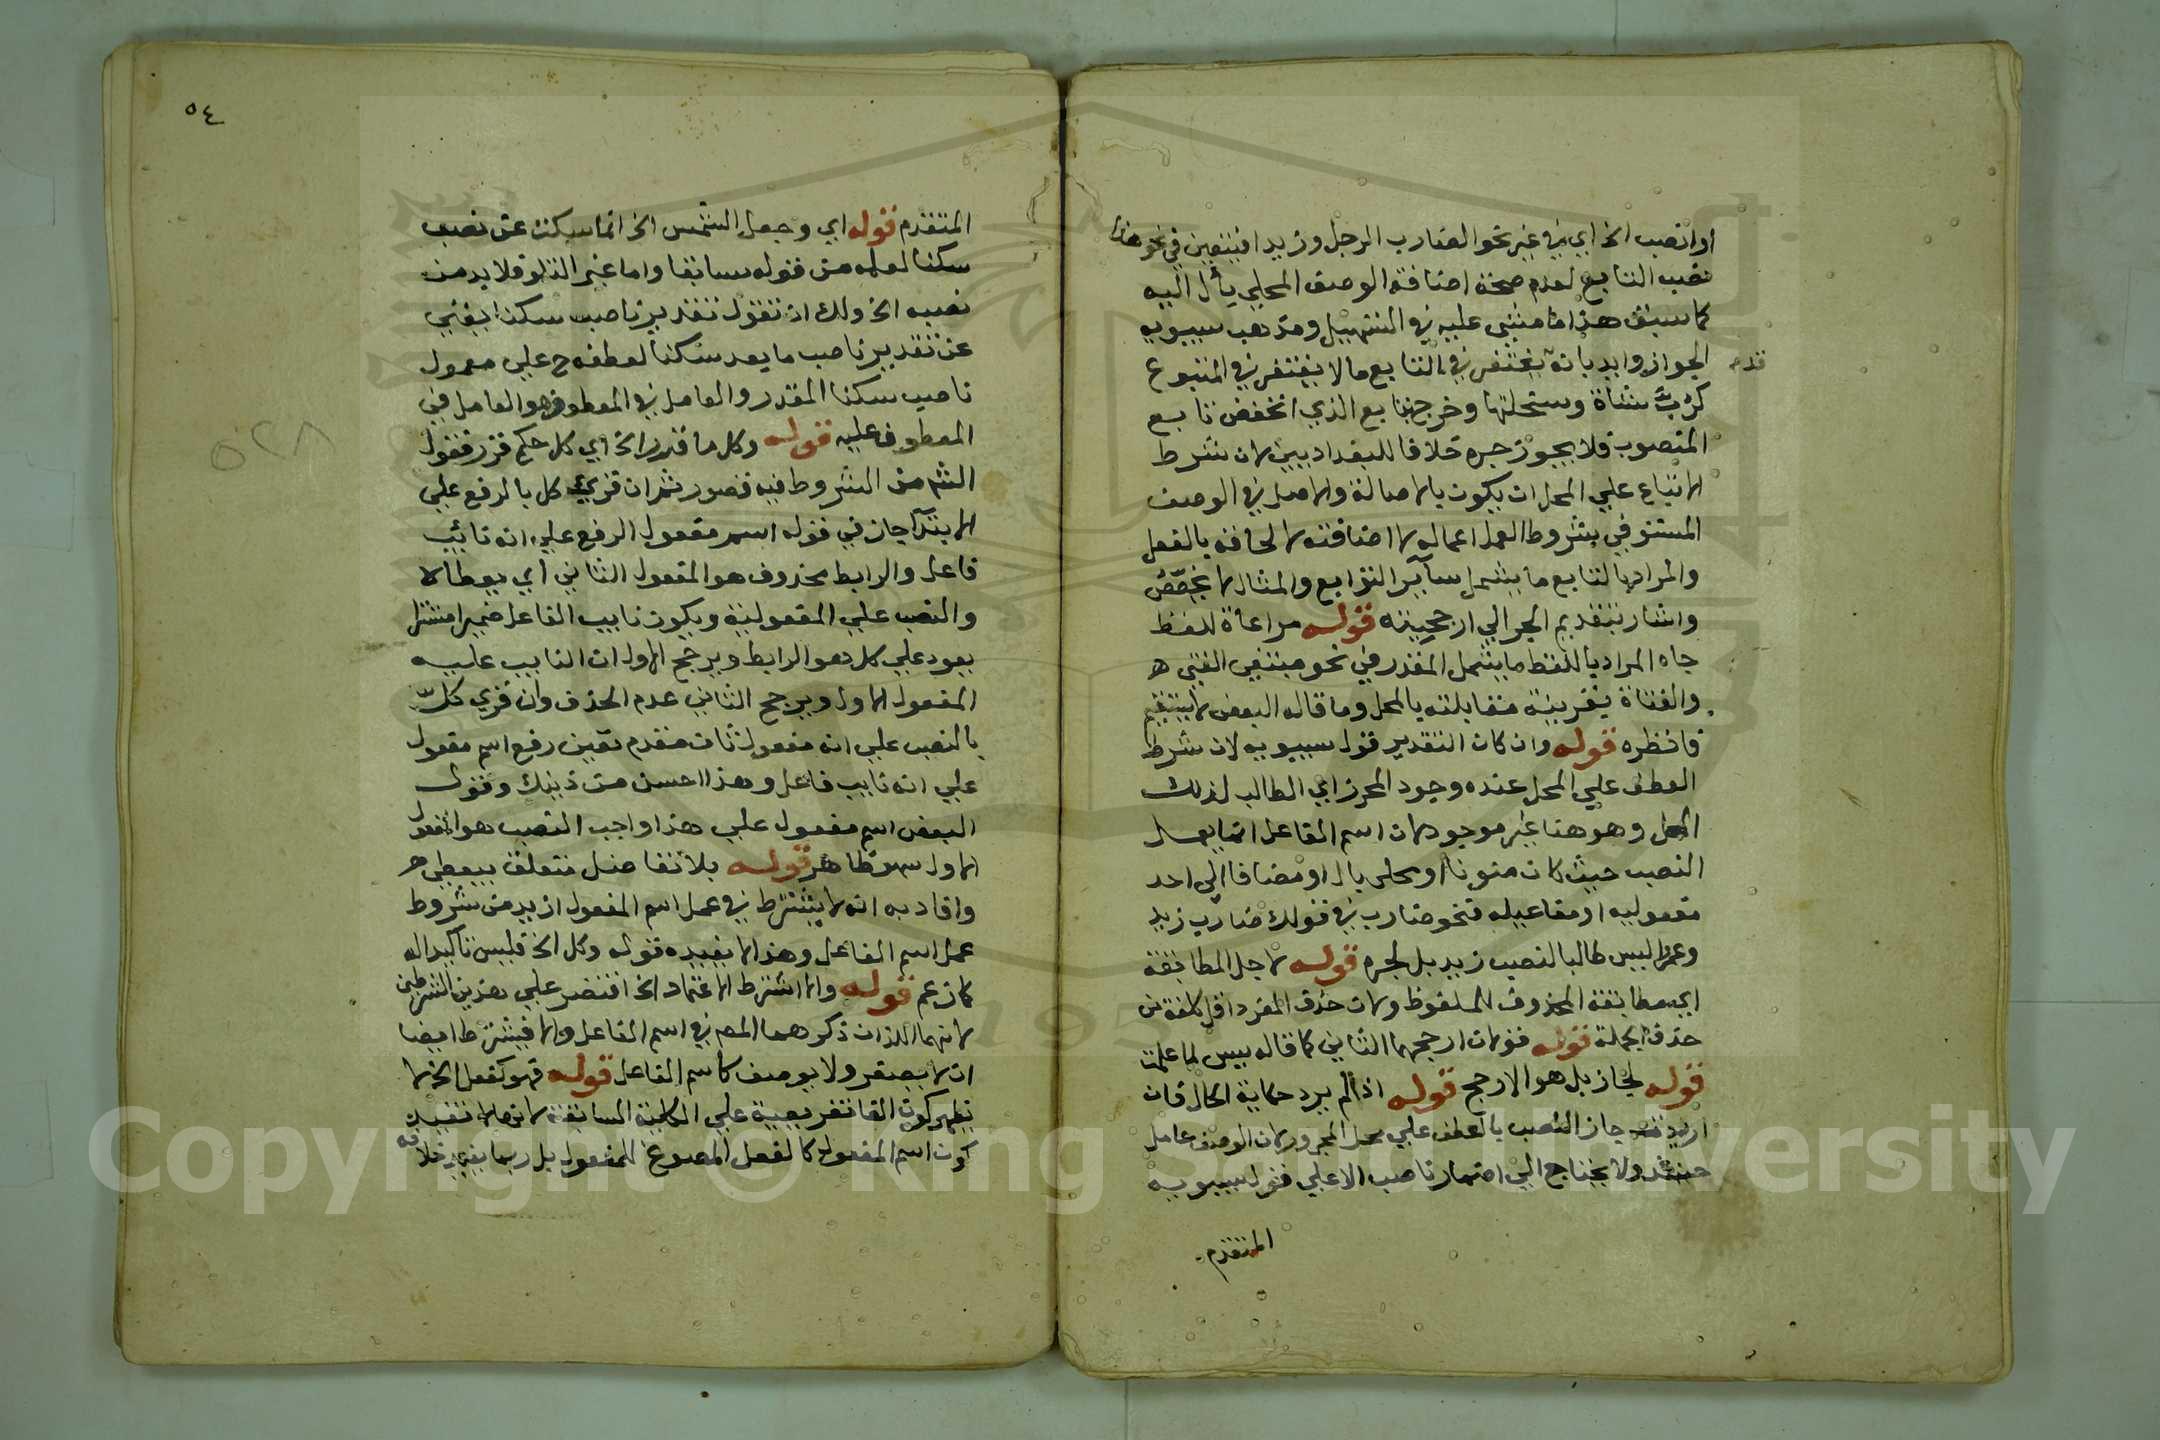 او انصب الخ اي في غير نحو الضارب الرجل وزيد افيتعين في نحو هذا
نصب التابع لعدم صحة اضافة الوصف المحلي بأل اليه
كما سبق هذا ما مشي عليه في التسهيل ومذهب سيبويه
الجواز وايد بانه يغتفر في التابع ما لا يغتفر في المتبوع
قدم
كرب شاة وسخلتها وخرج بتابع الذي انخفض تابع
المنصوب فلا يجوز جره خلافا للبغداديين لان شرط
الاتباع علي المحل ان يكون بالاصالة والاصل في الوصف
المستوفي بشروط العمل اعماله لا اضافته لالحاقه بالفعل
والمراد بالتابع ما يشمل سآير التوابع والمثال لا يخصص
واشار بتقديم الجر الي ارجحيته قوله مراعاة للفظ
جاه المراد باللفظ ما يشمل المقدر في نحو مبتغي الفتي ه
والفتاة بقرينة مقابلته بالمحل وما قاله البعض لا يستقيم
فانظره قوله وان كان التقدير قول سيبويه لان شرط
العطف علي المحل عنده وجود المحرز اي الطالب لذلك
المحل وهو هنا غير موجود لان اسم الفاعل انما يعمل
النصب حيث كان منونا او محلي بال او مضافا الي احد
مفعوليه او مفاعيله فنحو ضارب في قولك ضارب زيد
وعمرا ليس طالبا لنصب زيد بل لجره قوله لاجل المطابقة
اي مطابقة المحذوف للملفوظ ولان حذف المفرد اقل كلفة من
حذف الجملة قوله قولان ارجحهما الثاني كما قاله يس لما علمت
قوله لجاز بل هو الارجح قوله اذا لم يرد حكاية الحال فان
اريدت جاز النصب بالعطف علي محل المجرور لان الوصف عامل
حينئذ ولا يحتاج الي اضمار ناصب الا علي قول سيبويه
المتقدم
٥٤
المتقدم قوله اي وجعل الشمس الخ انما سكت عن نصب
سكنا لعلمه من قوله سابقا واما غير التلو فلا بد من
نصبه الخ ولك ان تقول تقدير ناصب سكنا يغني
عن تقدير ناصب ما بعد سكنا لعطفه ح علي معمول
ناصب سكنا المقدر والعامل في المعطوف هو العامل في
المعطوف عليه قوله وكل ما قرر الخ اي كل حكم قرر فقول
الش من الشروط فيه قصور ثم ان قرئ كل بالرفع علي
الابتدآ جاز في قوله اسم مفعول الرفع علي انه نائب
فاعل والرابط محذوف هو المفعول الثاني اي يعطاه
والنصب علي المفعولية ويكون نايب الفاعل ضميرا مستترا
يعود علي كل هو الرابط ويرجح الاول ان النايب عليه
المفعول الاول ويرجح الثاني عدم الحذف وان قرئ كل
بالنصب علي انه مفعول ثان مقدم تعين رفع اسم مفعول
علي انه نايب فاعل وهذا احسن من ذينك وقول
البعض اسم مفعول علي هذا واجب النصب هو المفعول
الاول سهو ظاهر قوله بلا تفاضل متعلق بيعطي ه
وافاد به انه لا يشترط في عمل اسم المفعول ازيد من شروط
عمل اسم الفاعل وهذا لا يفيده قوله وكل الخ فليس تاكيدا له
كما زعم قوله والا اشترط الاعتماد الخ اقتصر علي هذين الشرطين
لانهما اللذان ذكرهما المص في اسم الفاعل والا فيشترط ايضا
ان لا يصغر ولا يوصف كاسم الفاعل قوله فهو كفعل الخ لا
يظهر كون الفا تفريعية علي الكلية السابقة لانها لا تفيد
كون اسم المفعول كالفعل المصوغ للمفعول بل ربما يفيد خلافه
٥٢٨
Copyright © King Saud University